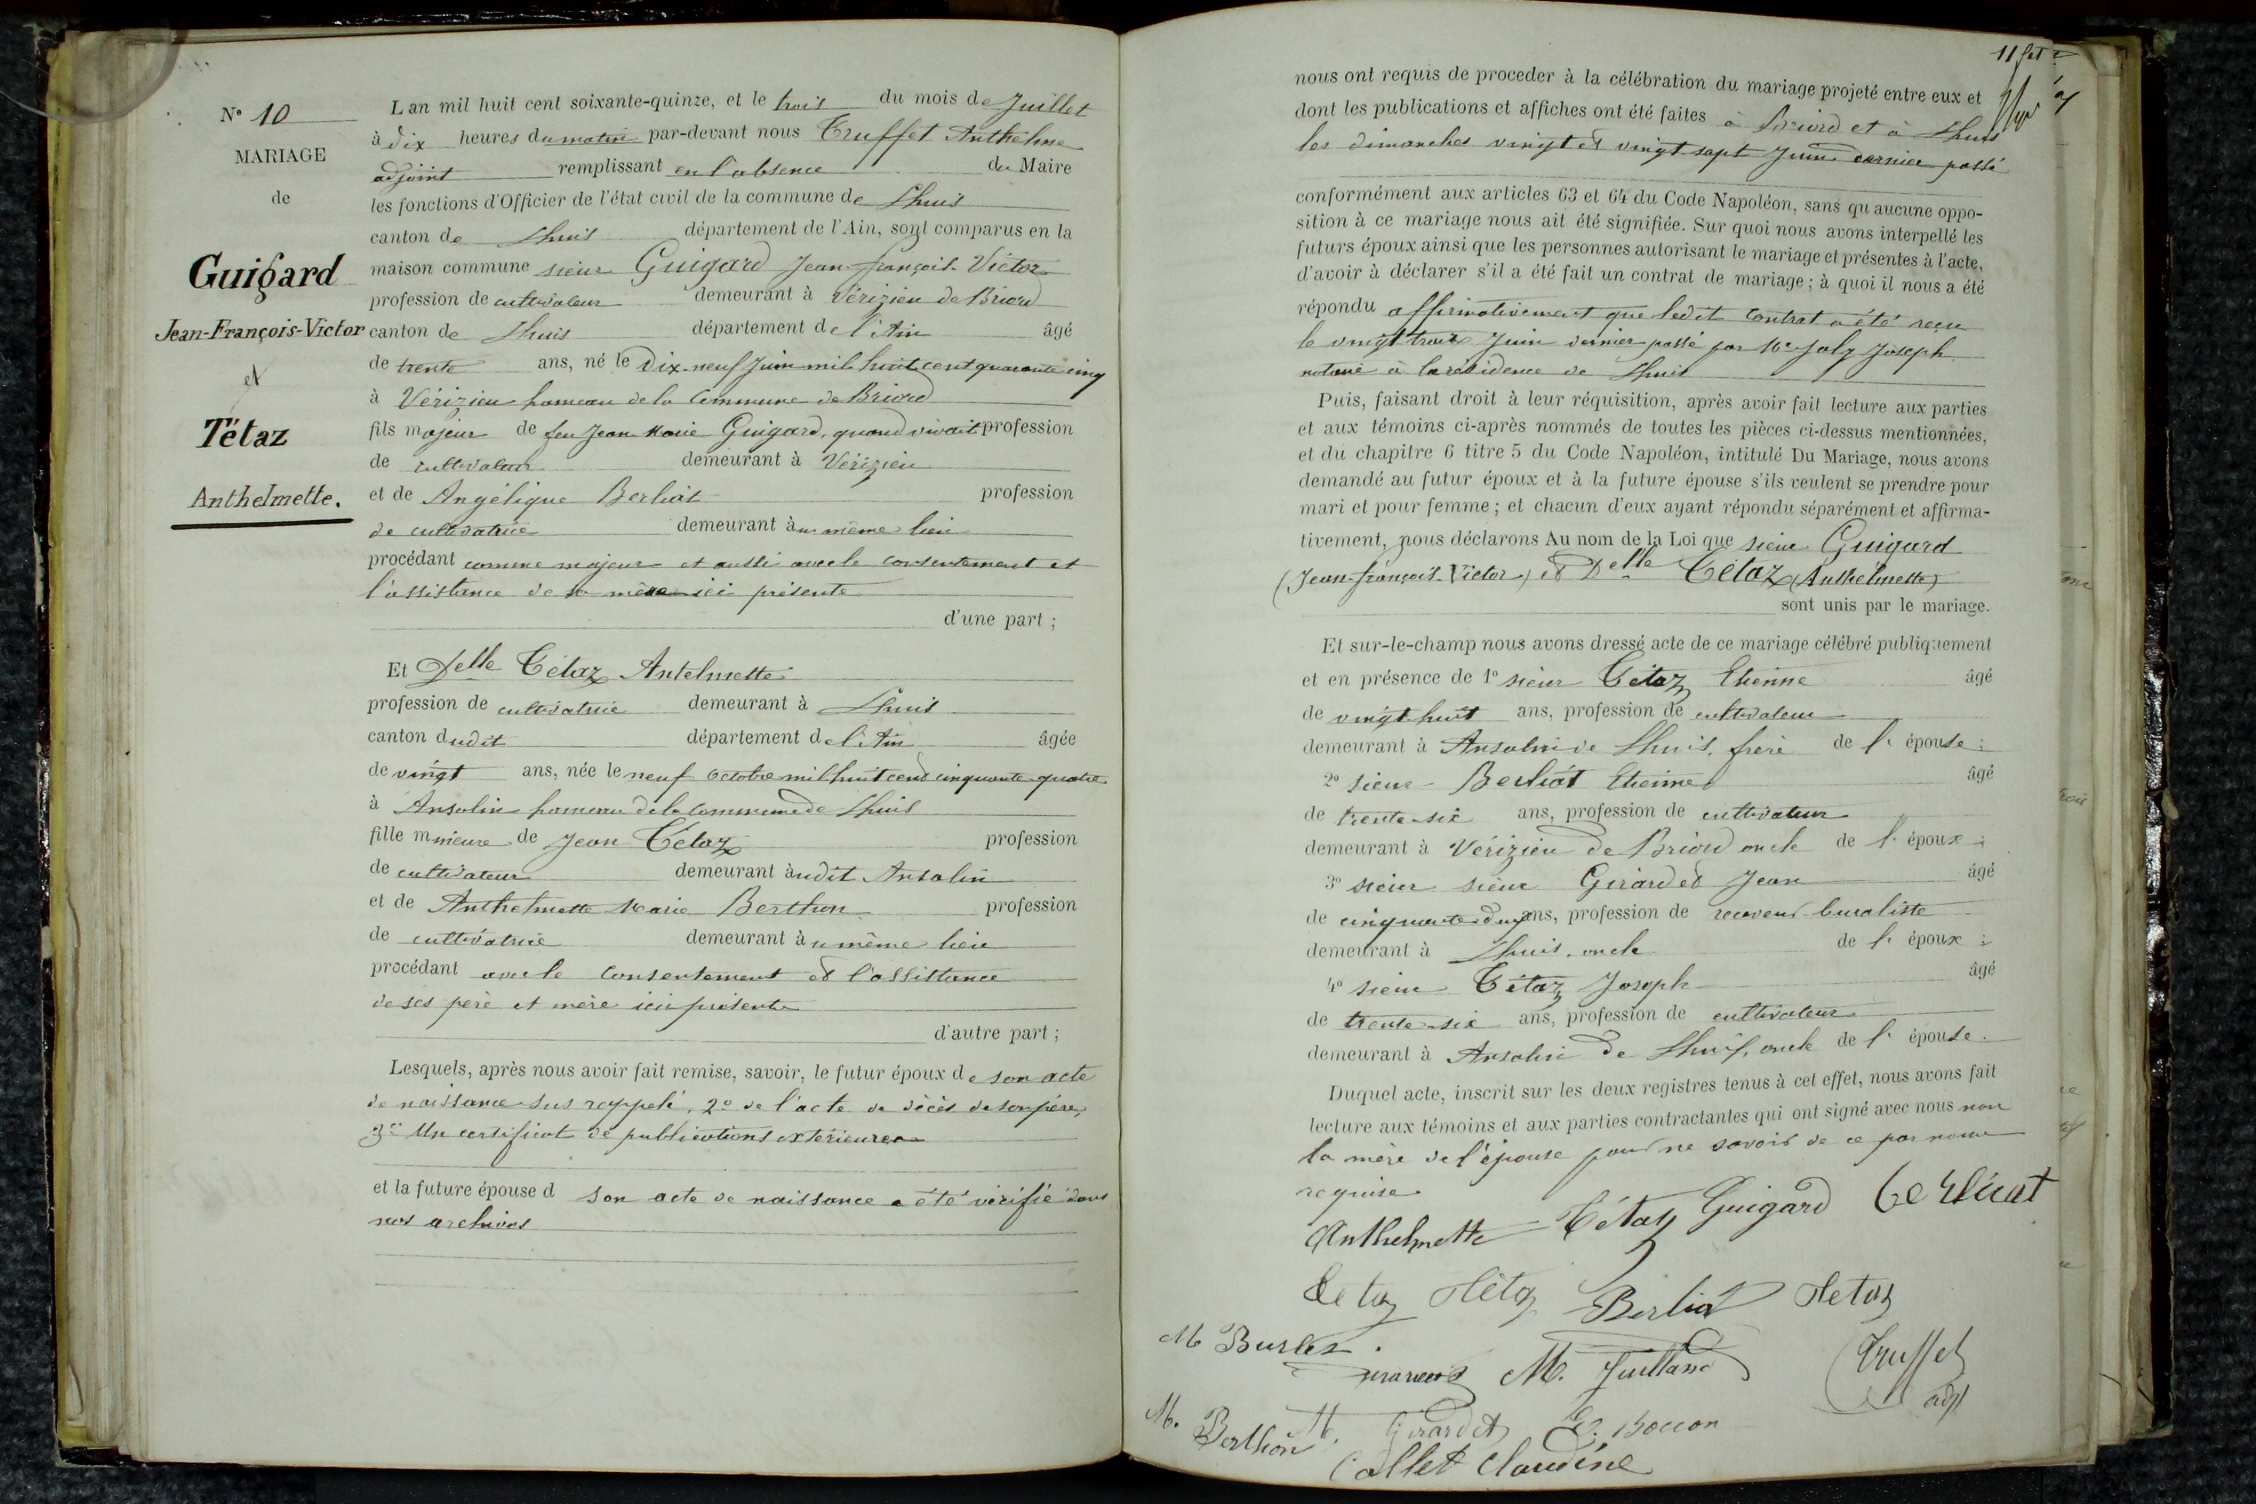 N° 10
MARIAGE
de
Guigard
Jean-François-Victor
et
Tétaz
Anthelmette.
L'an mil huit cent soixante-quinze, et le trois du mois de Juillet
à dix heures du matin par-devant nous Truffet Anthelme
adjoint remplissant en l'absence du Maire
les fonctions d'Officier de l'état civil de la commune de Lhuis
canton de Lhuis département de l'Ain, sont comparus en la
maison commune sieur Guigard Jean-françois-Victor
profession de cultivateur demeurant à Vérizieu de Briord
canton de Lhuis département de l'Ain âgé
de trente ans, né le Dix-neuf Juin mil huit cent quarante cinq
à Vérizieu hameau de la Commune de Briord
fils majeur de feu Jean Marie Guigard, quand vivait profession
de cultivateur demeurant à Vérizieu
et de Angélique Berliat profession
de cultivatrice demeurant au même lieu
procédant comme majeur et aussi avec le consentement et
l'assistance de sa mère ici présente
d'une part ;
Et Delle Tétaz Antelmette
profession de cultivatrice demeurant à Lhuis
canton dudit département de l'Ain âgée
de vingt ans, née le neuf octobre mil huit cent cinquante-quatre
à Ansolin hameau de la commune de Lhuis
fille mineure de Jean Tétaz profession
de cultivateur demeurant audit Ansolin
et de Anthelmette Marie Berthon profession
de cultivatrice demeurant au même lieu
procédant avec le consentement et l'assistance
de ses père et mère ici présents
d'autre part ;
Lesquels, après nous avoir fait remise, savoir, le futur époux de son acte
de naissance sus rappelé, 2° de l'acte de décès de son père,
3° Un certificat de publications extérieures
et la future épouse d son acte de naissance a été vérifié dans
nos archives
nous ont requis de procéder à la célébration du mariage projeté entre eux et
dont les publications et affiches ont été faites à Briord et à Lhuis
les dimanches vingt et vingt-sept Juin dernier passé
conformément aux articles 63 et 64 du Code Napoléon, sans qu'aucune oppo-
sition à ce mariage nous ait été signifiée. Sur quoi nous avons interpellé les
futurs époux ainsi que les personnes autorisant le mariage et présentes à l'acte,
d'avoir à déclarer s'il a été fait un contrat de mariage ; à quoi il nous a été
répondu affirmativement que ledit contrat a été reçu
le vingt-trois Juin dernier passé par Me Joly Joseph
notaire à la résidence de Lhuis
Puis, faisant droit à leur réquisition, après avoir fait lecture aux parties
et aux témoins ci-après nommés de toutes les pièces ci-dessus mentionnées,
et du chapitre 6 titre 5 du Code Napoléon, intitulé Du Mariage, nous avons
demandé au futur époux et à la future épouse s'ils veulent se prendre pour
mari et pour femme ; et chacun d'eux ayant répondu séparément et affirma-
tivement, nous déclarons Au nom de la Loi que sieur Guigard
(Jean-françois-Victor) et Delle Tétaz (Anthelmette)
sont unis par le mariage.
Et sur-le-champ nous avons dressé acte de ce mariage célébré publiquement
et en présence de 1° sieur Tétaz Etienne âgé
de vingt-huit ans, profession de cultivateur
demeurant à Ansolin de Lhuis, frère de l' épouse ;
2° sieur Berliat Etienne âgé
de trente-six ans, profession de cultivateur
demeurant à Vérizieu de Briord oncle de l' époux ;
3° sieur sieur Girardet Jean âgé
de cinquante-deux ans, profession de receveur buraliste
demeurant à Lhuis, oncle de l' époux ;
4° sieur Tétaz Joseph âgé
de trente-six ans, profession de cultivateur
demeurant à Ansolin de Lhuis, oncle de l' épouse.
Duquel acte, inscrit sur les deux registres tenus à cet effet, nous avons fait
lecture aux témoins et aux parties contractantes qui ont signé avec nous non
la mère de l'épouse pour ne savoir de ce par nous
requise
Anthelmette Tétaz Guigard berliat
Tetaz Tétaz Berliat Tetaz
M Burlet
M. Juilland Truffet
adjt
M. Berthon M. Girardet Bouon
Collet Claudine